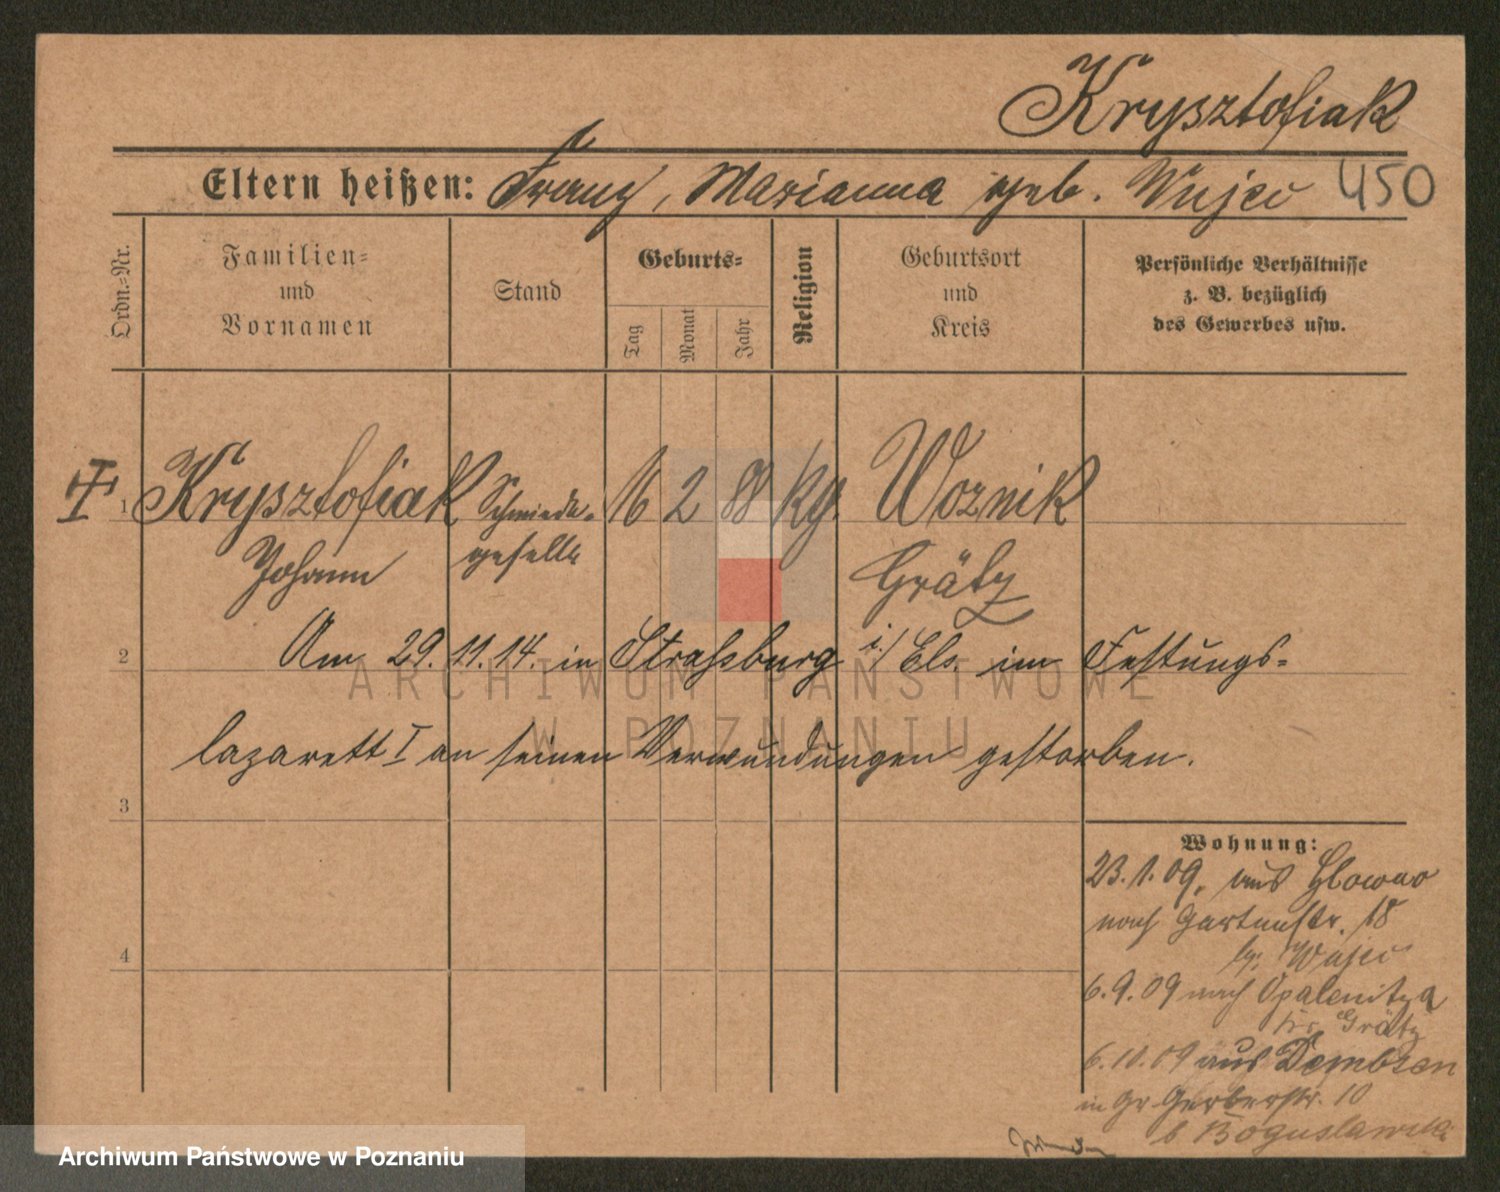 Krysztofiak
Eltern heißen: Franz, Marianna geb. Wujec 450
Ordn.-Nr.
Familien-
und
Vornamen
Stand
Geburts-
Tag
Monat
Jahr
Religion
Geburtsort
und
Kreis
Persönliche Verhältnisse
z. B. bezüglich
des Gewerbes usw.
1 Krysztofiak Schmiede- 16 2 88 kg. Woznik
Johann geselle Grätz
2 Am 29. 11. 14. in Strassburg i./Els. im Festungs-
lazarett I an seinen Verwundungen gestorben.
3
4
Wohnung:
23.1.09. aus Glowno
nach Gartenstr. 18
Wujec
6.9.09 nach Opalenitza
Krs Grätz
6.10.09 aus Dembsen
in Gr Gerberstr. 10
b Boguslawski
ARCHIWUM PAŃSTWOWE
W POZNANIU
Archiwum Państwowe w Poznaniu